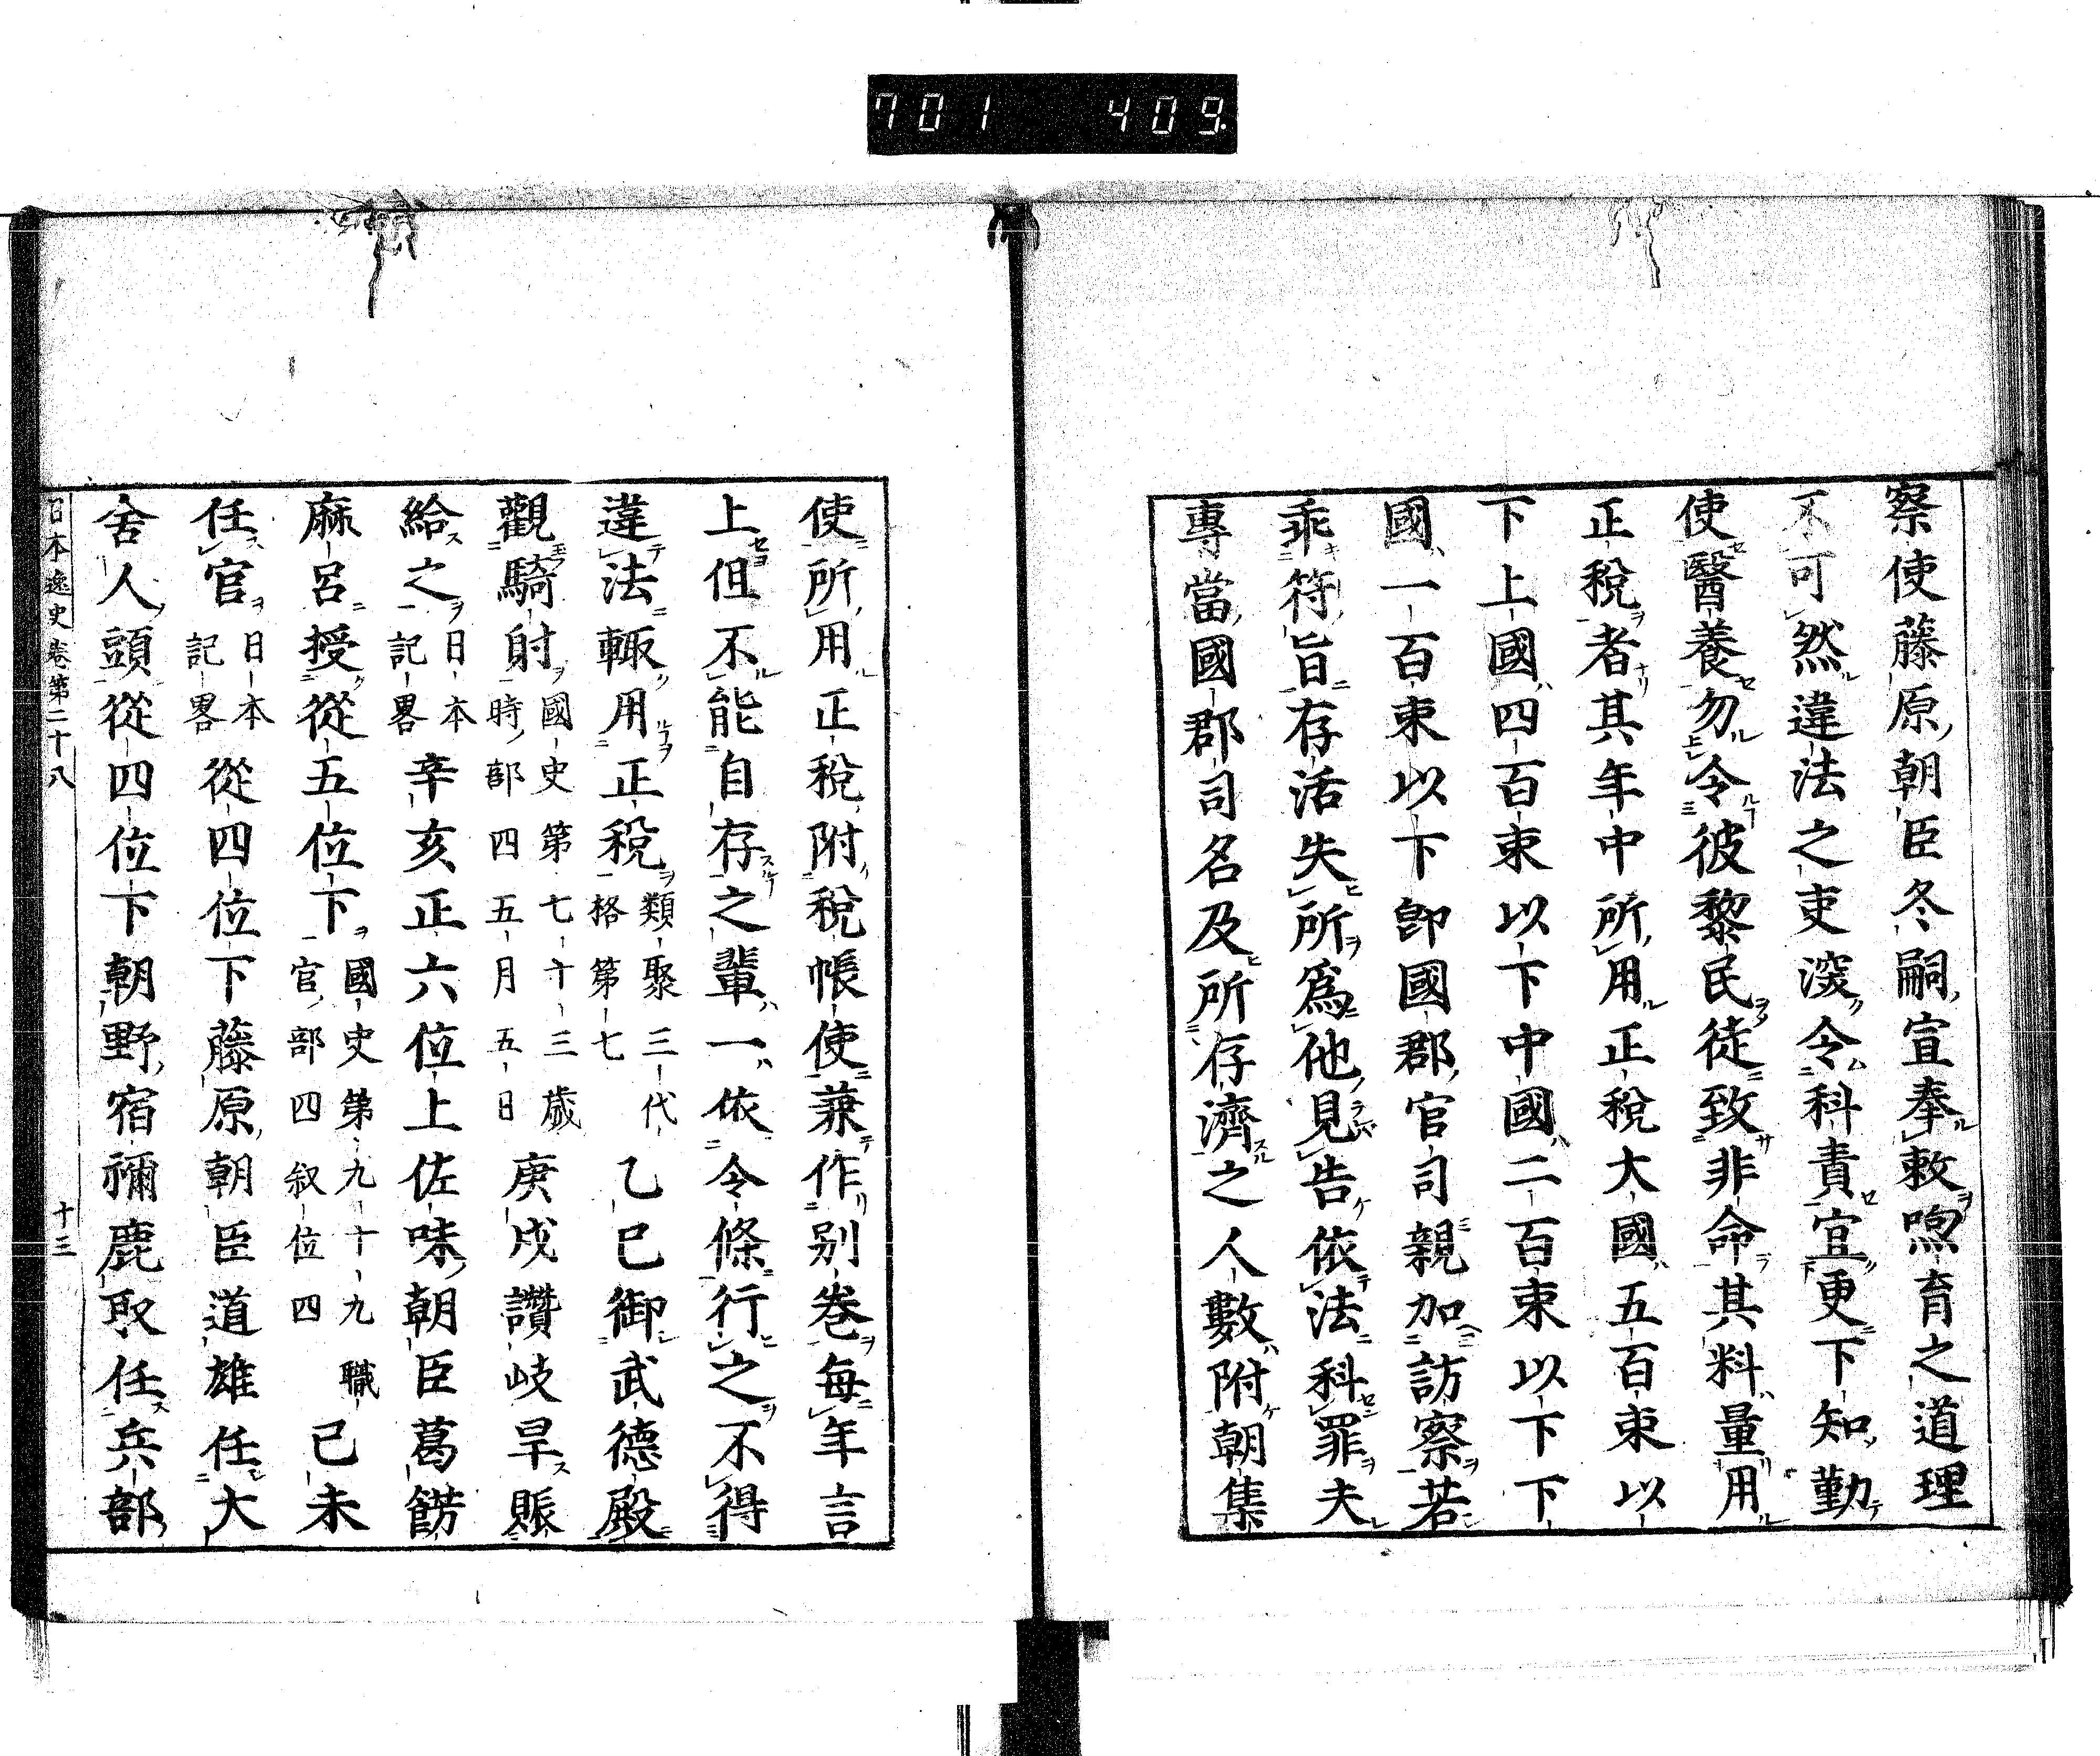 701 409
察使藤原朝臣冬嗣宣奉敕喣育之道理
不可然違法之吏深令科責宜更下知勤
使醫養勿令彼黎民徒致非命其料量用
正稅者其年中所用正稅大國五百束以
下上國四百束以下中國二百束以下下
國一百束以下卽國郡官司親加訪察若
乖符旨存活失所爲他見告依法科罪夫
專當國郡司名及所存濟之人數附朝集
使所用正稅附稅帳使兼作別卷每年言
上但不能自存之輩一依令條行之不得
違法輙用正稅類聚三代格第七乙巳御武德殿
觀騎射國史第七十三歲時部四五月五日庚戌讚岐旱賑
給之日本記畧辛亥正六位上佐味朝臣葛餝
麻呂授從五位下國史第九十九職官部四叙位四己未
任官日本記畧從四位下藤原朝臣道雄任大
舍人頭從四位下朝野宿禰鹿取任兵部
日本逸史卷第二十八 十三